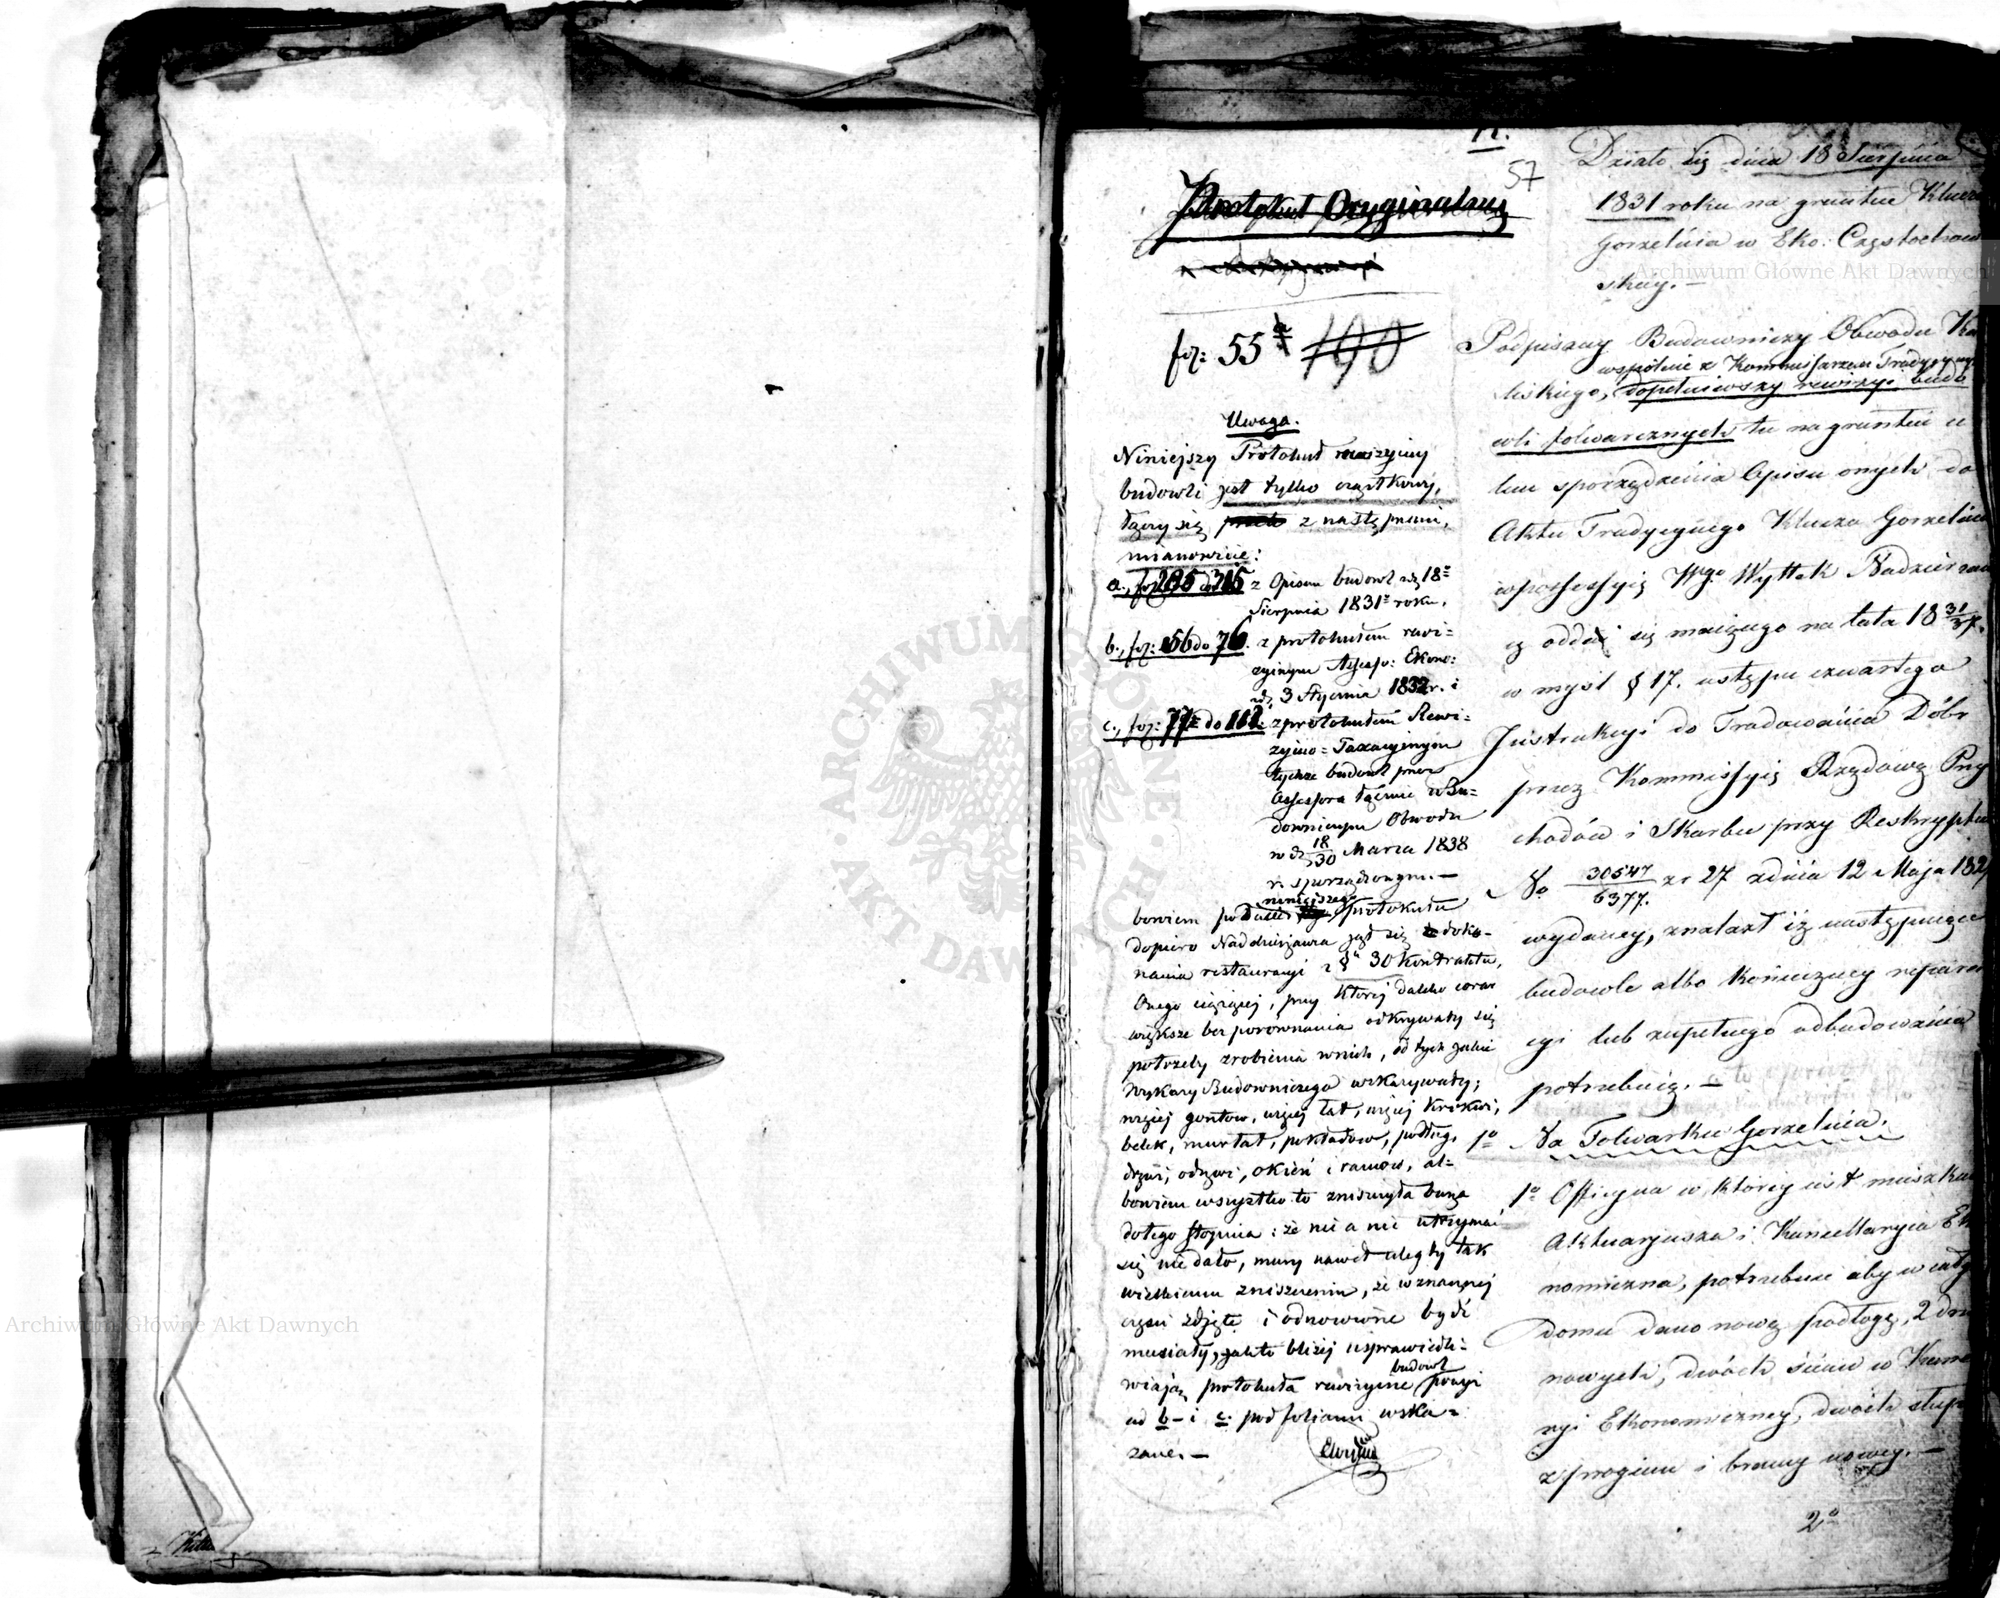 57
Protokuł Oryginalny
fol: 55 a 190
Uwaga.
Niniejszy Protokuł rewizyiny
budowli jest tylko cząstkowy,
łączy się z następnemi,
mianowicie:
a., fol: 295 do 315 z Opisem budowl z dnia 18
Sierpnia 1831 roku.
b., fol: 56 do 76. z protokułem rewi=
zyinym Assesso: Ekono:
z d. 3 Stycznia 1832 r. i
c., fol: 77 do 112. z protokułem Rewi=
zyino=Taxacyinym
tychże budowl przez
Assessora łącznie z Bu=
downiczym Obwodu
w d. 18/30 Marca 1838
r. sporządzonym.—
niniejszego
bowiem podług protokułu
dopiero Naddzierżawca jął się doko-
nania restauracyi z §u 30 Kontraktu,
Onego ciążącej, przy której daleko coraz
większe bez porównania odkrywały się
potrzeby zrobienia wnich, od tych jakie
Wykazy Budowniczego wskazywały;
więcej gontów, więcej łat, więcej Krokwi,
belek, murłat, pokładów, podłog,
drzwi, odrzwi, okien i ramów, al=
bowiem wszystko to zniszczyła burza
dotego stopnia: że nic a nic utrzymać
się nie dało, mury nawet uległy tak
wielkiemu zniszczeniu, że w znacznej
części zdjęte i odnowione bydź
musiały, jakto bliżej usprawiedli=
budowl
wiają protokuła rewizyine powyi
ad b– i c. pod foliami wska=
zane.—
Działo się dnia 18 Sierpnia
1831 roku na gruncie Klucza
Gorzelnia w Eko: Częstochow
skiey.—
Podpisany Budowniczy Obwodu Ka
wspólnie z Kommissarzem Tradycyinym
liskiego, dopełniwszy rewizyi budo
wli folwarcznych tu na gruncie w
celu sporządzenia Opisu onych do
Aktu Tradycyinego Klucza Gorzelnia
wposessyią Wgo Wyttek Naddzierżaw
cy oddać się maiącego na lata 18 31/37.
w myśl § 17. ustępu czwartego
Instrukcyi do Tradowania Dóbr
przez Kommissyią Rządową Przy
chodów i Skarbu przy Reskrypcie
No 30547/6377. z r 27 z dnia 12 Maja 182
wydaney, znalazł iż następuiące
budowle albo konieczney repara
cyi lub zupełnego odbudowania
potrzebuią.—
1o Na Folwarku Gorzelnia.
1o Officyna w którey iest mieszkan
Aktuaryusza i Kancellarya Eko
nomiczna, potrzebuie aby w całym
domu dano nową podłogę, 2 drzwi
nowych, dwóch ścian w Kance
ryi Ekonomiczney, dwóch słup
z progiem i bramy nowey.—
2o
Archiwum Główne Akt Dawnych
Archiwum Główne Akt Dawnych
ARCHIWUM GŁÓWNE · AKT DAWNYCH ·